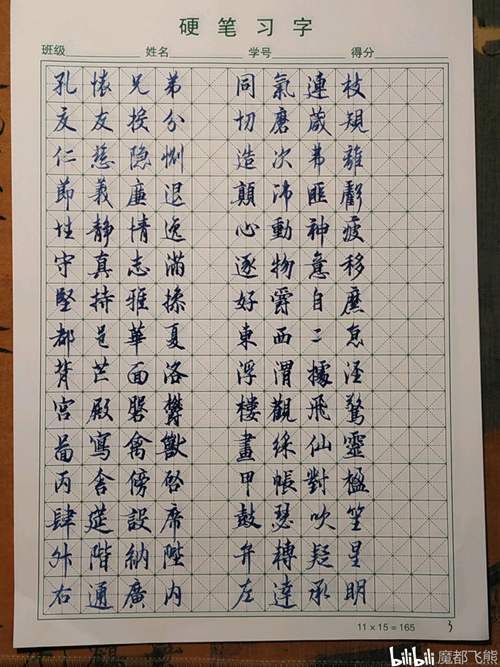 硬笔习字
班级 姓名 学号 得分
孔懷兄弟 同氣連枝
交友投分 切磨箴規
仁慈隐惻 造次弗離
節義廉退 顛沛匪虧
性靜情逸 心動神疲
守真志滿 逐物意移
堅持雅操 好爵自縻
都邑華夏 東西二京
背芒面洛 浮渭據涇
宮殿磐鬱 樓觀飛驚
圖寫禽獸 畫綵仙靈
丙舍傍啓 甲帳對楹
肆筵設席 鼓瑟吹笙
升階納陛 弁轉疑星
右通廣内 左達承明
11×15=165 3
bilibili 魔都飞熊